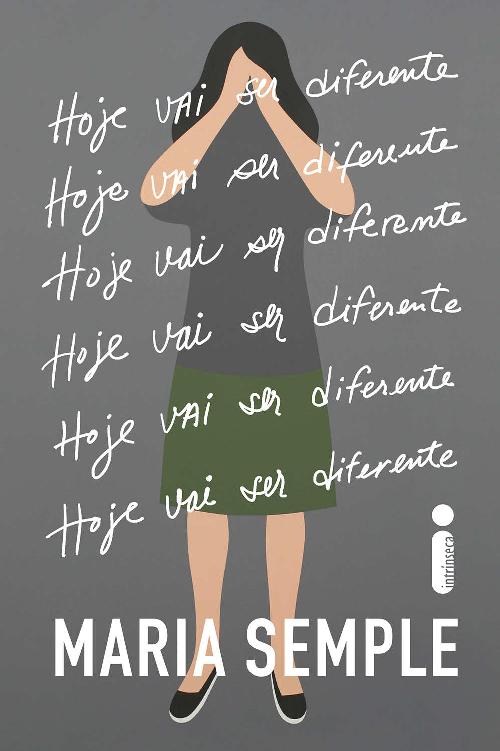 Hoje vai ser diferente
Hoje vai ser diferente
Hoje vai ser diferente
Hoje vai ser diferente
Hoje vai ser diferente
Hoje vai ser diferente
intrínseca
MARIA SEMPLE